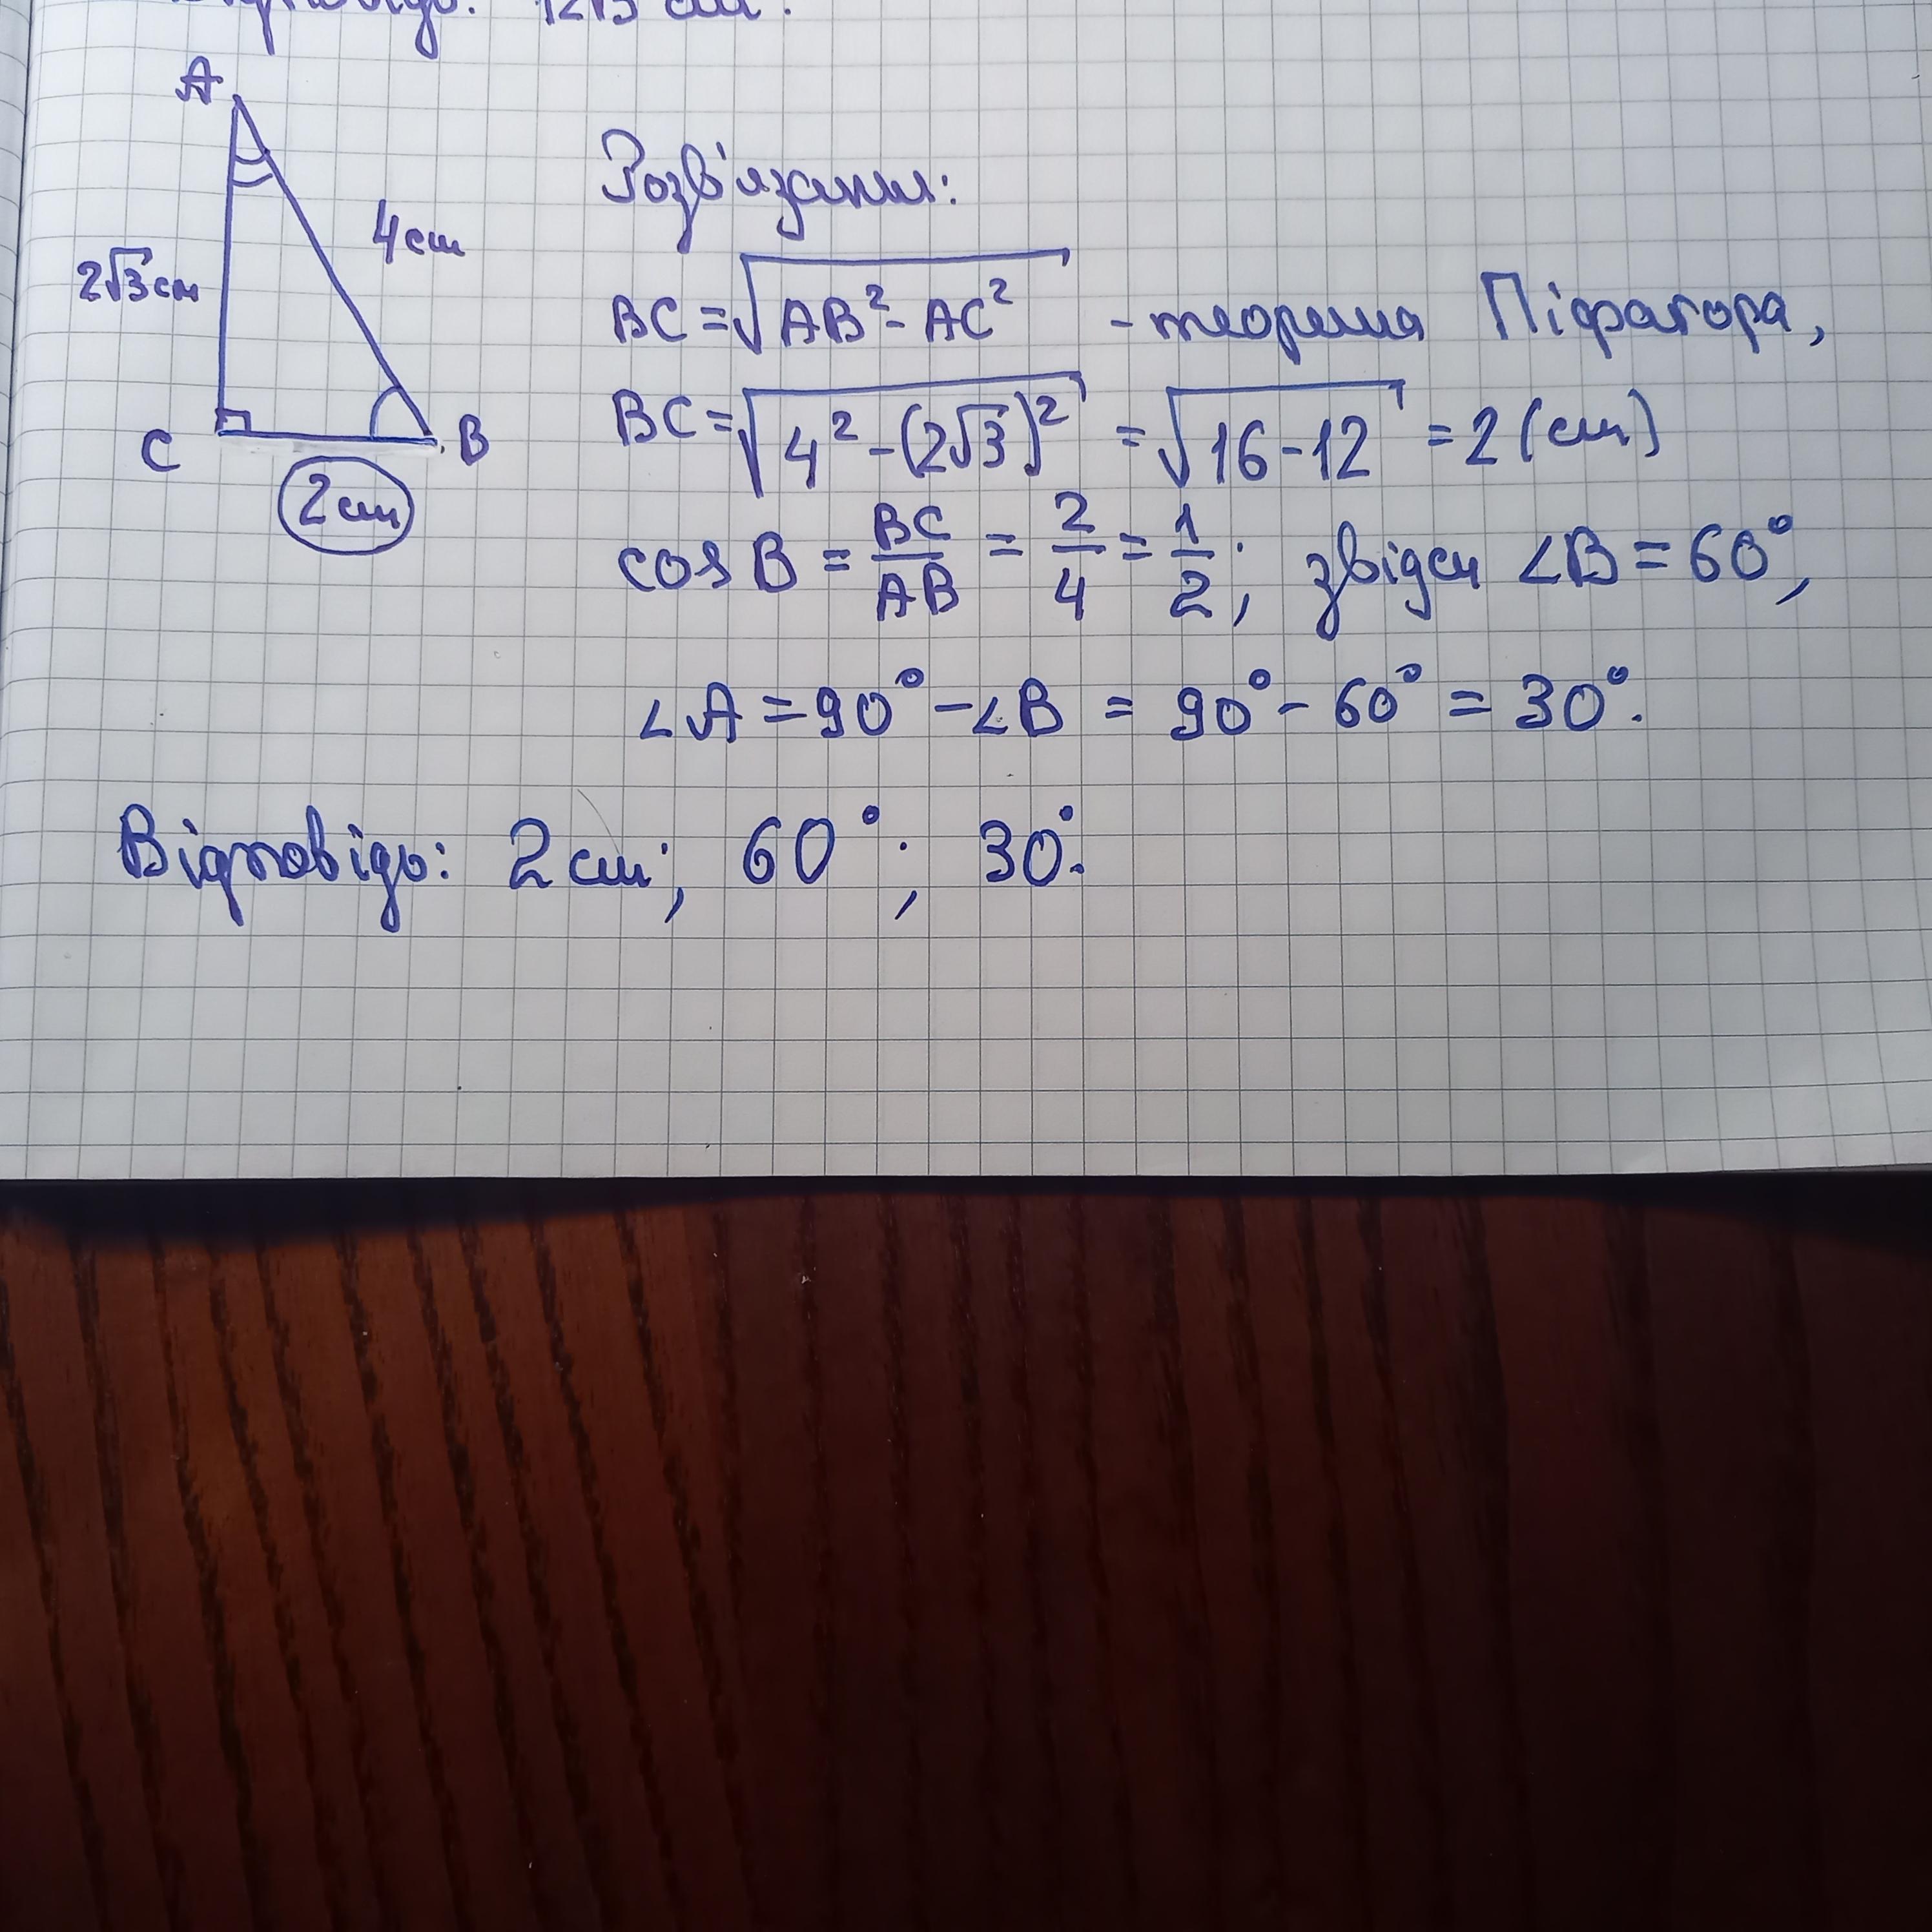 Відповідь: 12√3 см².
A
4 см
2√3 см
C
B
2 см
Розв'язання:
BC = √(AB² - AC²) - теорема Піфагора,
BC = √(4² - (2√3)²) = √(16 - 12) = 2 (см)
cos B = BC/AB = 2/4 = 1/2; звідси ∠B = 60°,
∠A = 90° - ∠B = 90° - 60° = 30°.
Відповідь: 2 см; 60°; 30°.